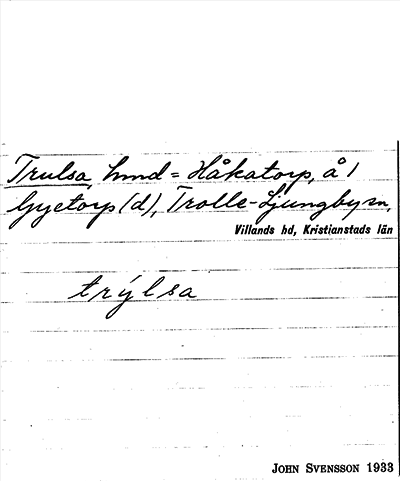 Trulsa, hmd = Håkatorp, å 1
Gyetorp (d), Trolle-Ljungby sn,
Villands hd, Kristianstads län
trýlsa
JOHN SVENSSON 1933